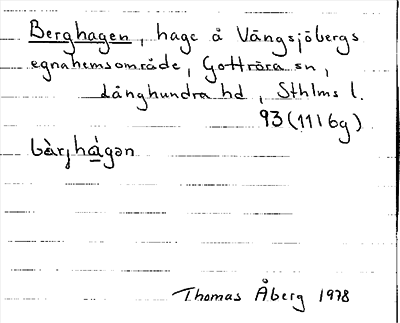 Berghagen, hage å Vängsjöbergs
egnahemsområde, Gottröra sn,
Långhundra hd, Sthlms l.
93 (11I6g)
bàrjhàgən
Thomas Åberg 1978